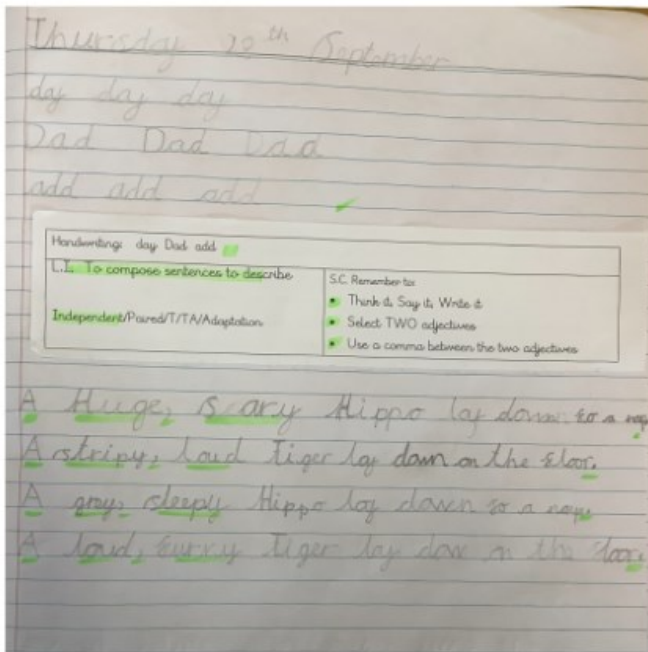 Thursday 20th September
day day day
Dad Dad Dad
add add add
Handwriting: day Dad add
L.I. To compose sentences to describe
Independent/Paired/T/TA/Adaptation
S.C. Remember to:
Think it, Say it, Write it
Select TWO adjectives
Use a comma between the two adjectives
A Huge, scary Hippo lay down for a nap.
A stripy, loud Tiger lay down on the floor.
A gray, sleepy Hippo lay down for a nap.
A loud, furry Tiger lay dow on the floor.